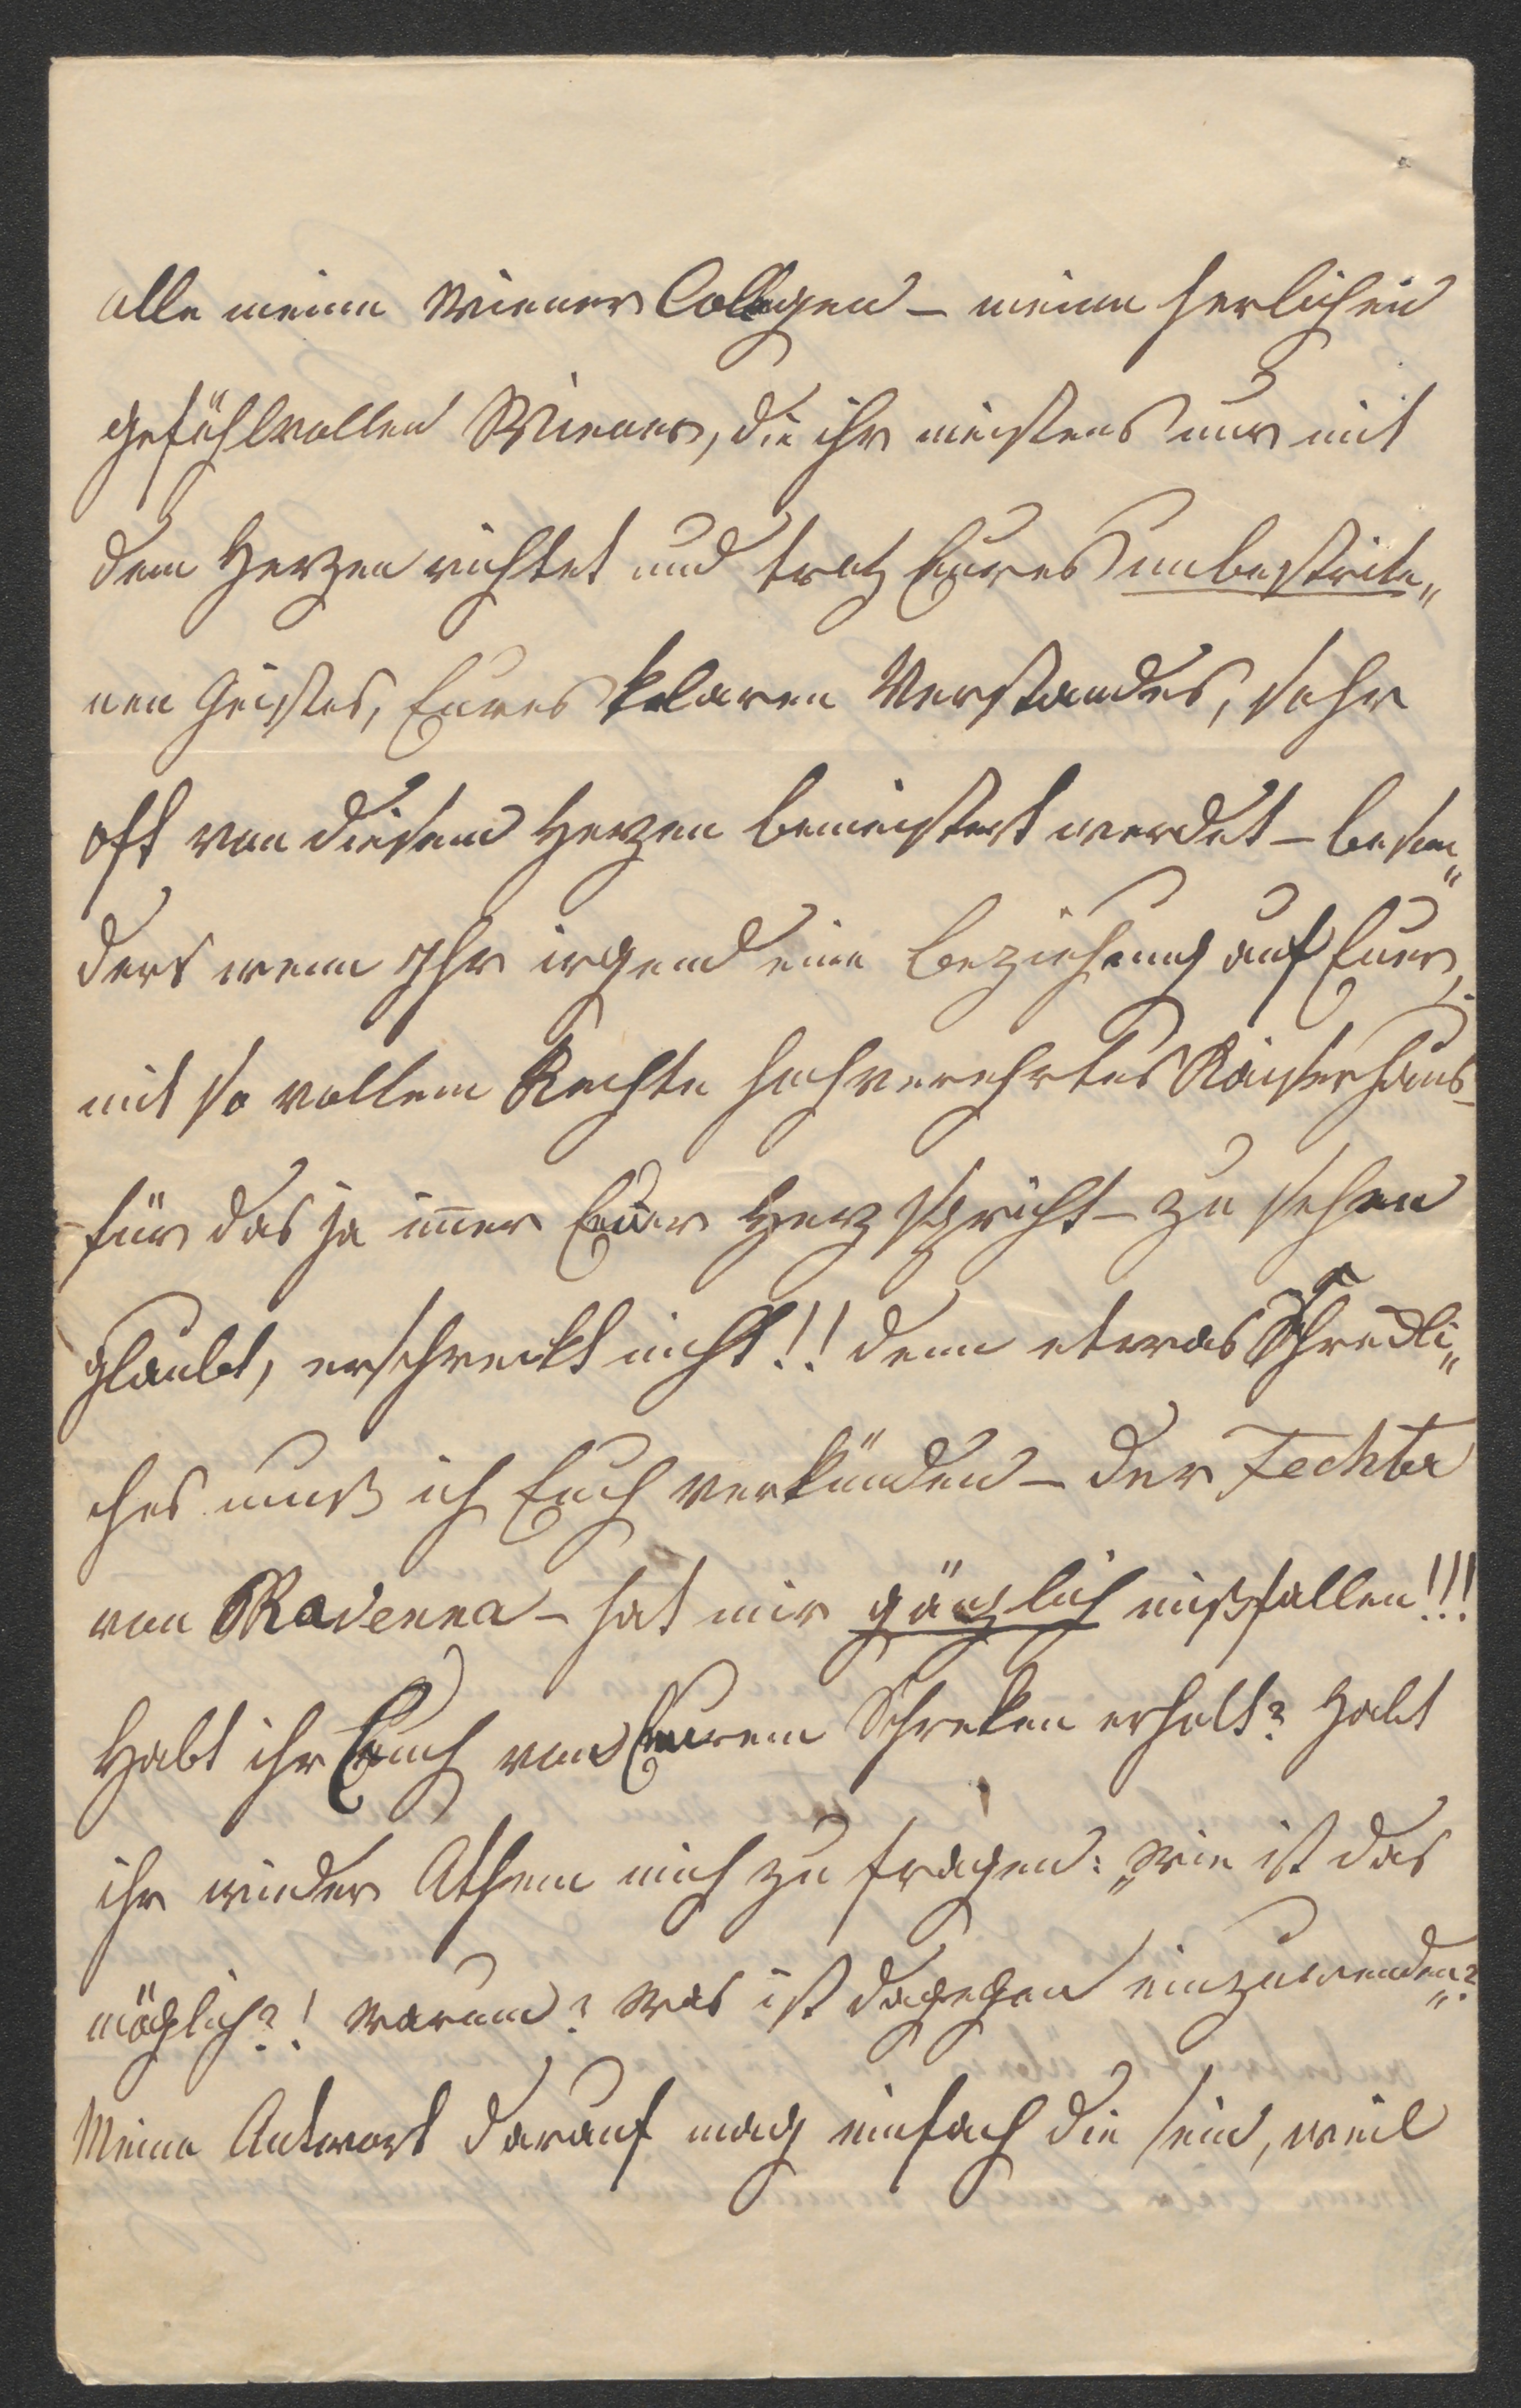 alle meine Wiener Collegen – meine herlichen
gefühlvollen Wiener, die ihr meistens nur mit
dem Herzen richtet und trotz Eures unbestritte„
nen Geistes, Eures klaren Verstandes, sehr
oft von diesem Herzen bemeistert werdet – beson„
ders wenn Ihr irgend eine Beziehung auf Euer,
mit so vollem Rechte hochverehrtes Kaiserhaus –
– für das ja im̅er Euer Herz spricht – zu sehen
glaubt, erschreckt nicht!! denn etwas Schreckli„
ches muß ich Euch verkünden – der Fechter
von Ravenna – hat mir gänzlich mißfallen!!!
Habt ihr Euch von Eurem Schreken erholt? Habt
ihr wieder Athem mich zu fragen: „wie ist das
möglich?! Warum? Was ist dagegen einzuwenden?“
Meine Antwort darauf mag einfach die sein, weil